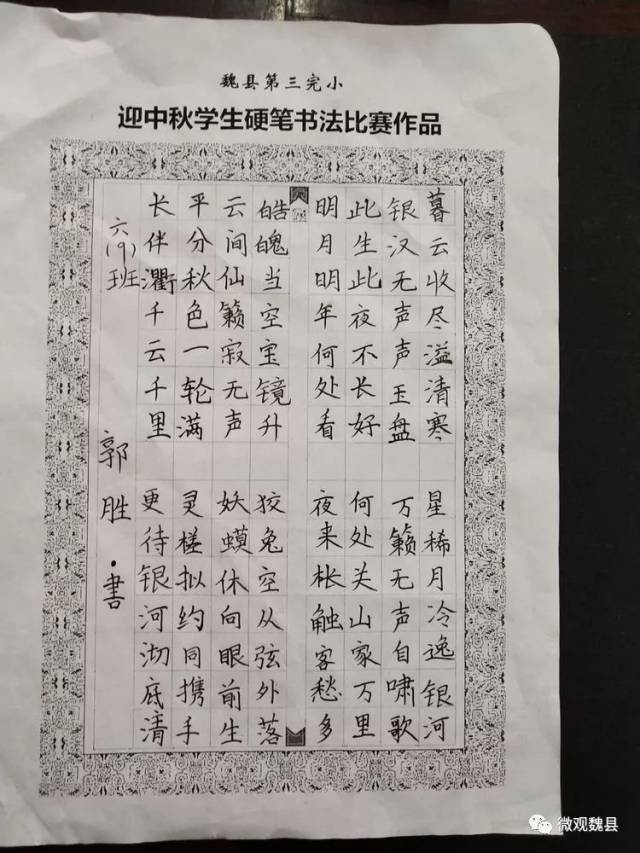 魏县第三完小
迎中秋学生硬笔书法比赛作品
暮云收尽溢清寒
银汉无声声玉盘
此生此夜不长好
明月明年何处看
星稀月冷逸银河
万籁无声自啸歌
何处关山家万里
夜来枨触客愁多
皓魄当空宝镜升
云间仙籁寂无声
平分秋色一轮满
长伴衢千云千里
狡兔空从弦外落
妖蟆休向眼前生
灵槎拟约同携手
更待银河沏底清
六(9)班
郭胜·書
微观魏县